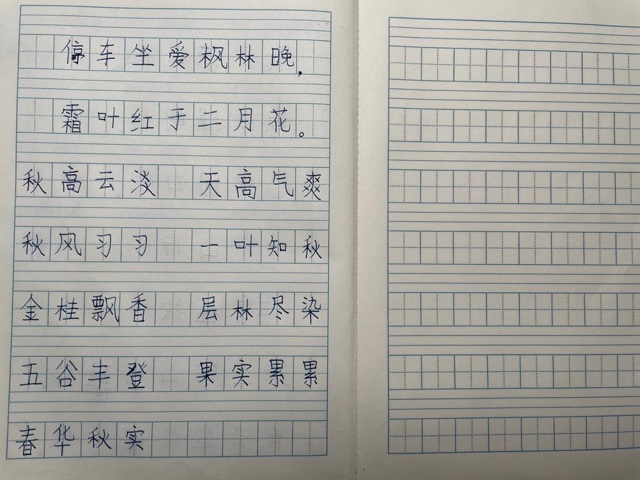 停车坐爱枫林晚，
霜叶红于二月花。
秋高云淡 天高气爽
秋风习习 一叶知秋
金桂飘香 层林尽染
五谷丰登 果实累累
春华秋实